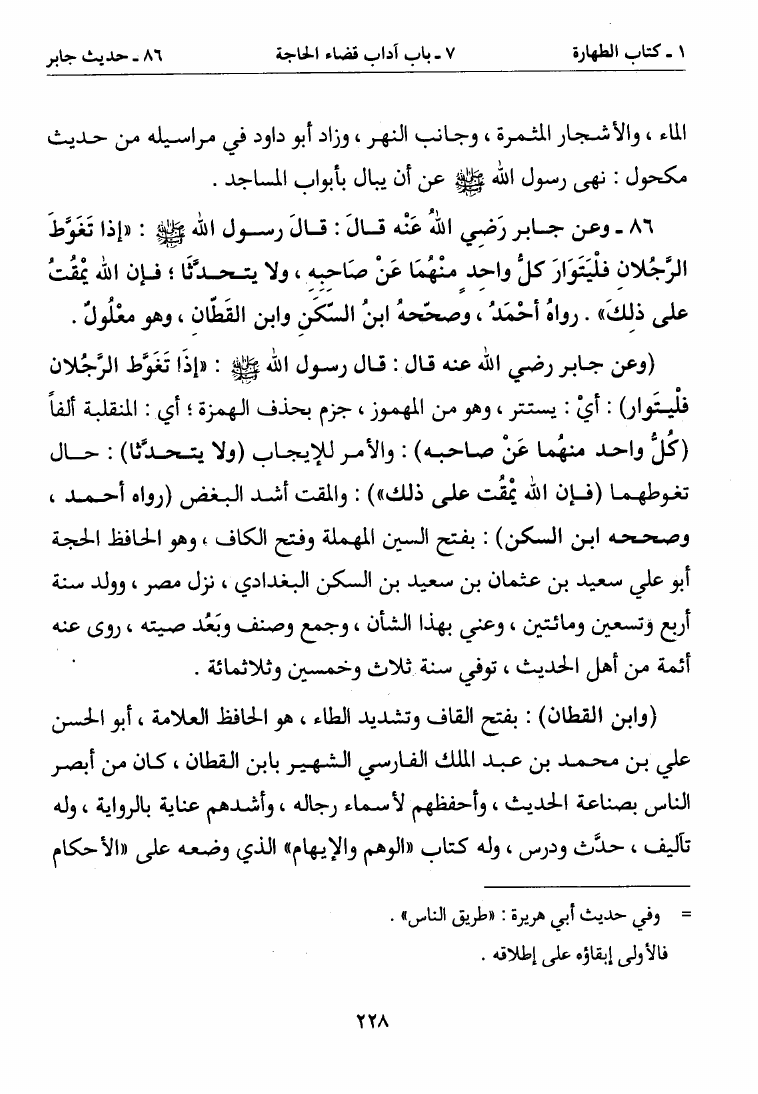 ١ ـ كتاب الطهارة ٧ ـ باب آداب قضاء الحاجة ٨٦ ـ حديث جابر
الماء ، والأشجار المثمرة ، وجانب النهر ، وزاد أبو داود في مراسيله من حديث
مكحول : نهى رسول الله ﷺ عن أن يبال بأبواب المساجد .
٨٦ ـ وعن جابر رَضي اللهُ عَنْه قالَ : قالَ رسول الله ﷺ : «إذا تَغَوَّطَ
الرَّجُلانِ فلْيَتَوَارَ كلُّ واحدٍ منْهُمَا عَنْ صَاحبِهِ ، ولا يتحدثَّا ؛ فإن الله يمْقُتُ
على ذلكَ» . رواهُ أحْمَدُ ، وصحّحهُ ابنُ السّكَنِ وابن القَطّانِ ، وهو معْلُولٌ .
(وعن جابر رضي الله عنه قال : قال رسول الله ﷺ : «إذَا تَغَوَّط الرَّجُلان
فلْيتَوار) : أيْ : يستتر ، وهو من المهموز ، جزم بحذف الهمزة ؛ أي : المنقلبة ألفاً
(كُلُّ واحد منهُما عَنْ صاحبه) : والأمر للإيجاب (ولا يتحدَّثا) : حال
تغوطهما (فإن الله يمْقُت على ذلك») : والمقت أشد البغض (رواه أحمد ،
وصححه ابن السكن) : بفتح السين المهملة وفتح الكاف ، وهو الحافظ الحجة
أبو علي سعيد بن عثمان بن سعيد بن السكن البغدادي ، نزل مصر ، وولد سنة
أربع وتسعين ومائتين ، وعني بهذا الشأن ، وجمع وصنف وبَعُد صيته ، روى عنه
أئمة من أهل الحديث ، توفي سنة ثلاث وخمسين وثلاثمائة .
(وابن القطان) : بفتح القاف وتشديد الطاء ، هو الحافظ العلامة ، أبو الحسن
علي بن محمد بن عبد الملك الفارسي الشهير بابن القطان ، كان من أبصر
الناس بصناعة الحديث ، وأحفظهم لأسماء رجاله ، وأشدهم عناية بالرواية ، وله
تآليف ، حدَّث ودرس ، وله كتاب «الوهم والإيهام» الذي وضعه على «الأحكام
= وفي حديث أبي هريرة : «طريق الناس» .
فالأولى إبقاؤه على إطلاقه .
٢٢٨